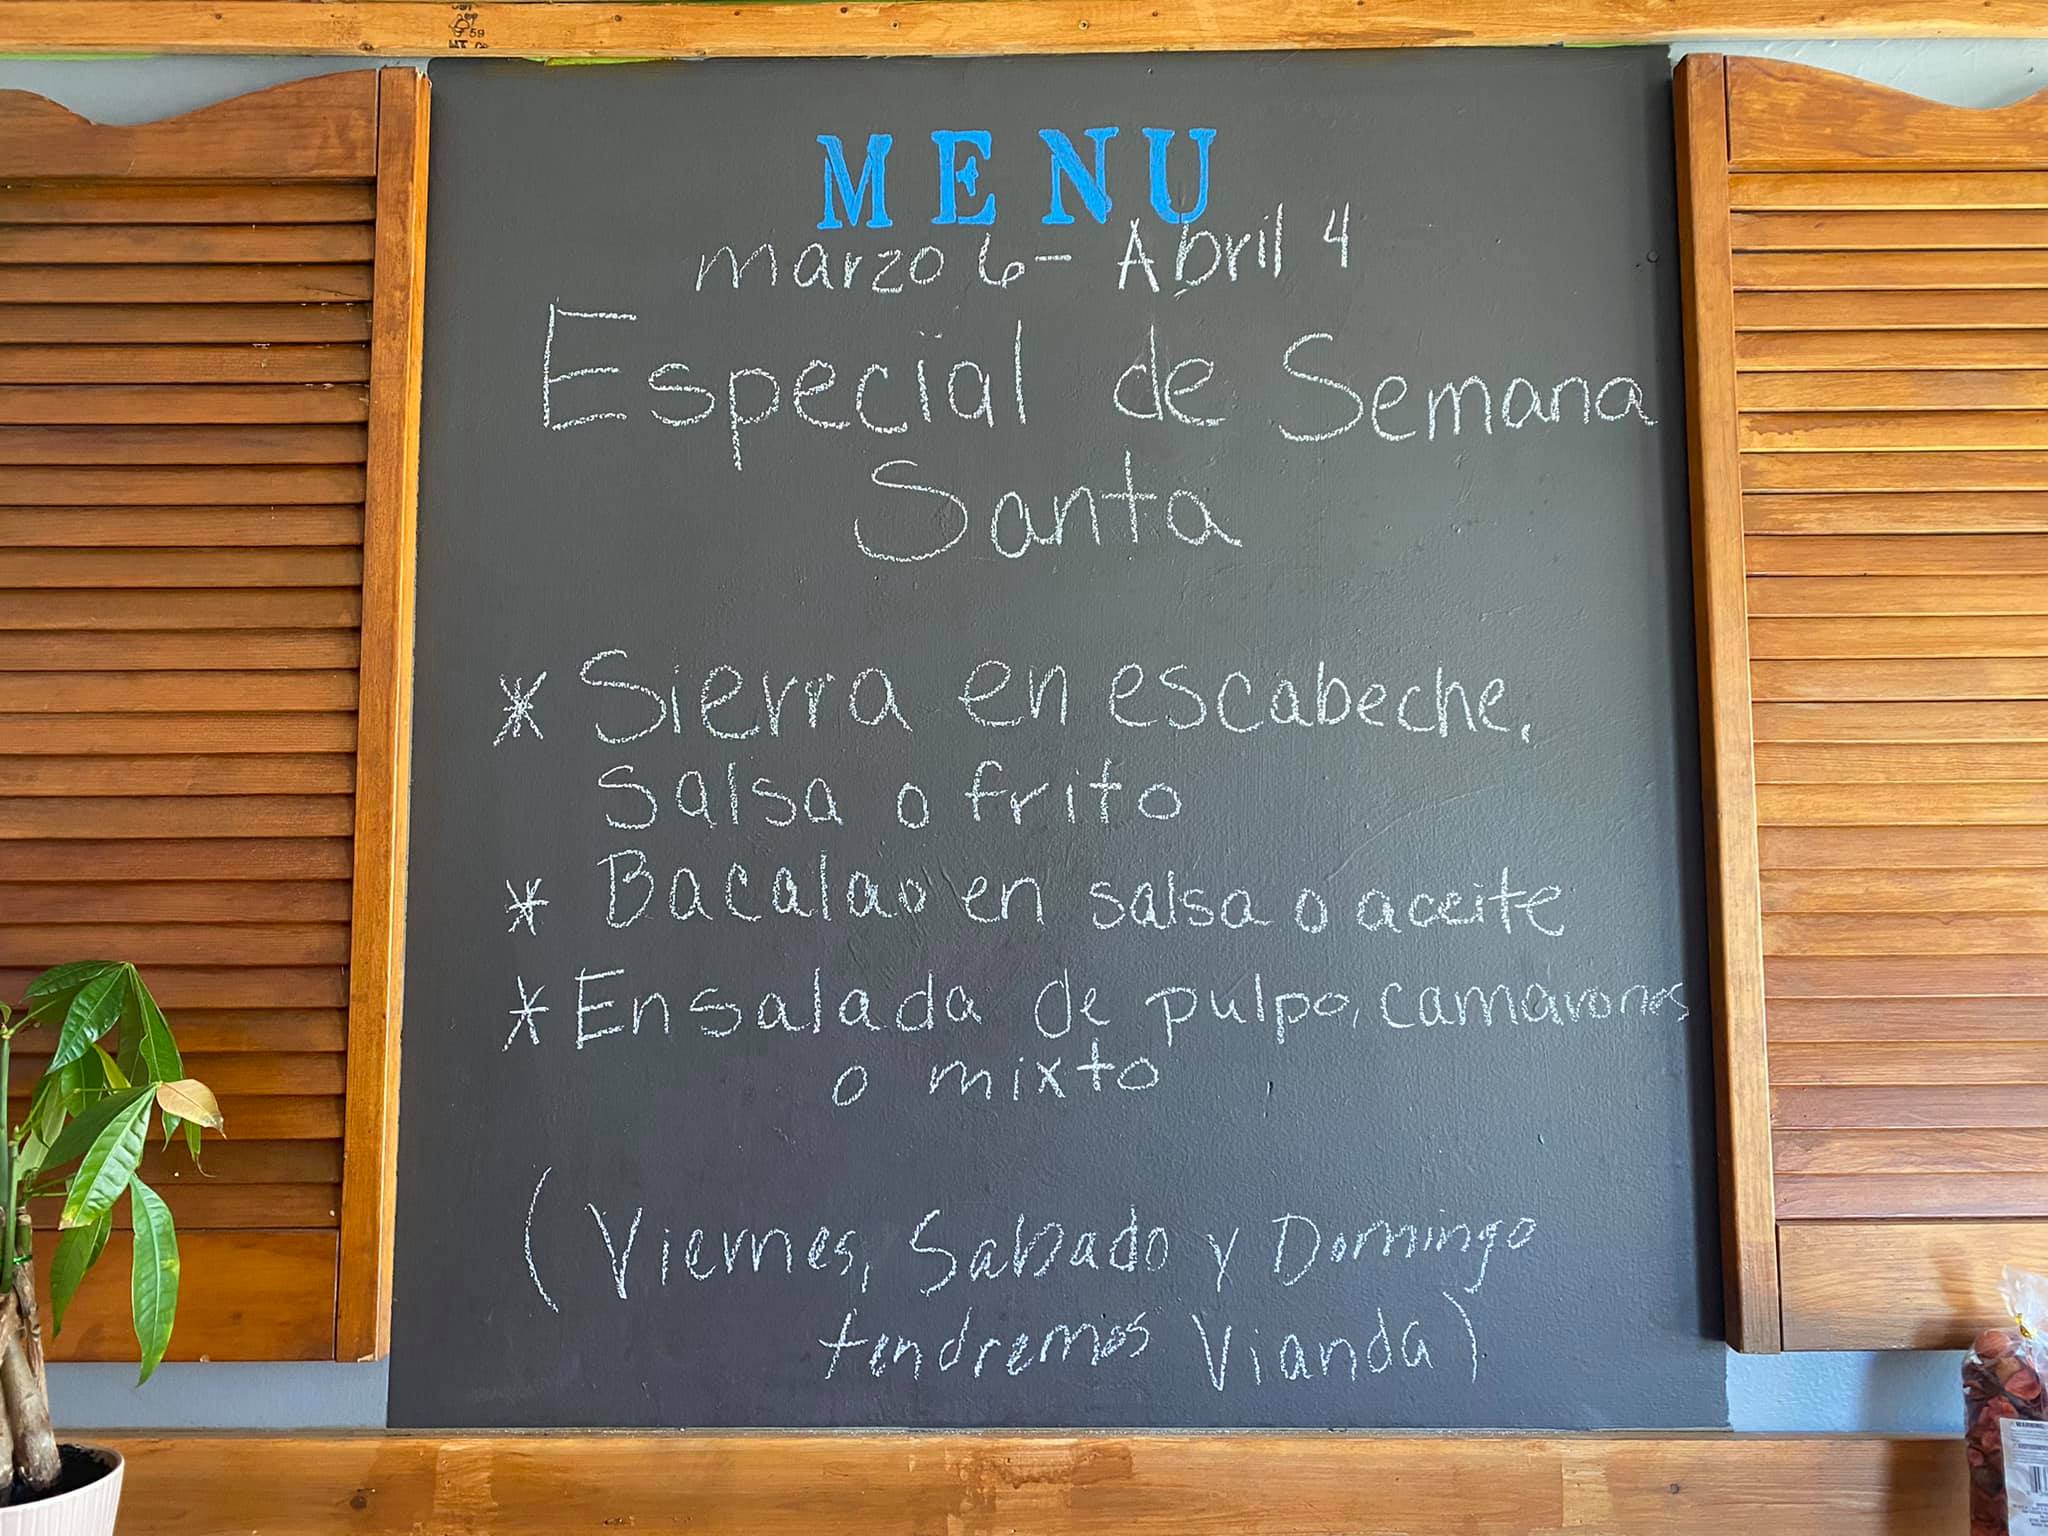 MENU
marzo 6 - Abril 4
Especial de Semana
Santa
* Sierra en escabeche,
salsa o frito
* Bacalao en salsa o aceite
* Ensalada de pulpo, camarones
o mixto
(Viernes, Sabado y Domingo
tendremos Vianda)